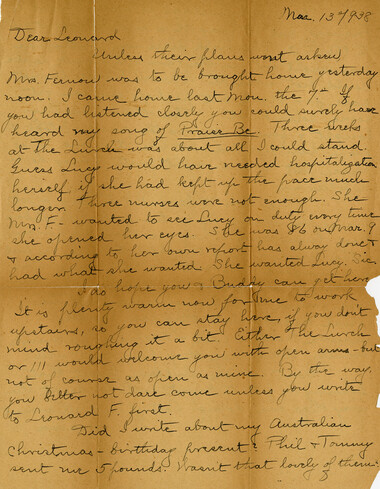 Mar. 13th 1938
Dear Leonard
Unless their plans went askew
Mrs. Fernow was to be brought home yesterday
noon. I came home last Mon. the 7th. If
you had listened closely you could surely have
heard my song of Praise Be. Three weeks
at The Lurch was about all I could stand.
Guess Lucy would have needed hospitalization
herself if she had kept up the pace much
longer. Three nurses were not enough. She
Mrs. F- wanted to see Lucy on duty every time
she opened her eyes. She was 86 on Mar. 9
& according to her own report has alway done &
had what she wanted. She wanted Lucy.
I do hope you & Buddy can get here
It is plenty warm now for me to work
upstairs, so you can stay here, if you don't
mind roughing it a bit. Either The Lurch
or 111 would welcome you with open arms - but
not of course as open as mine. By the way,
you better not dare come unless you write
to Leonard F. first.
Did I write about my Australian
Christmas - birthday present? Phil & Tommy
sent me 5 pounds. Wasn't that lovely of them?